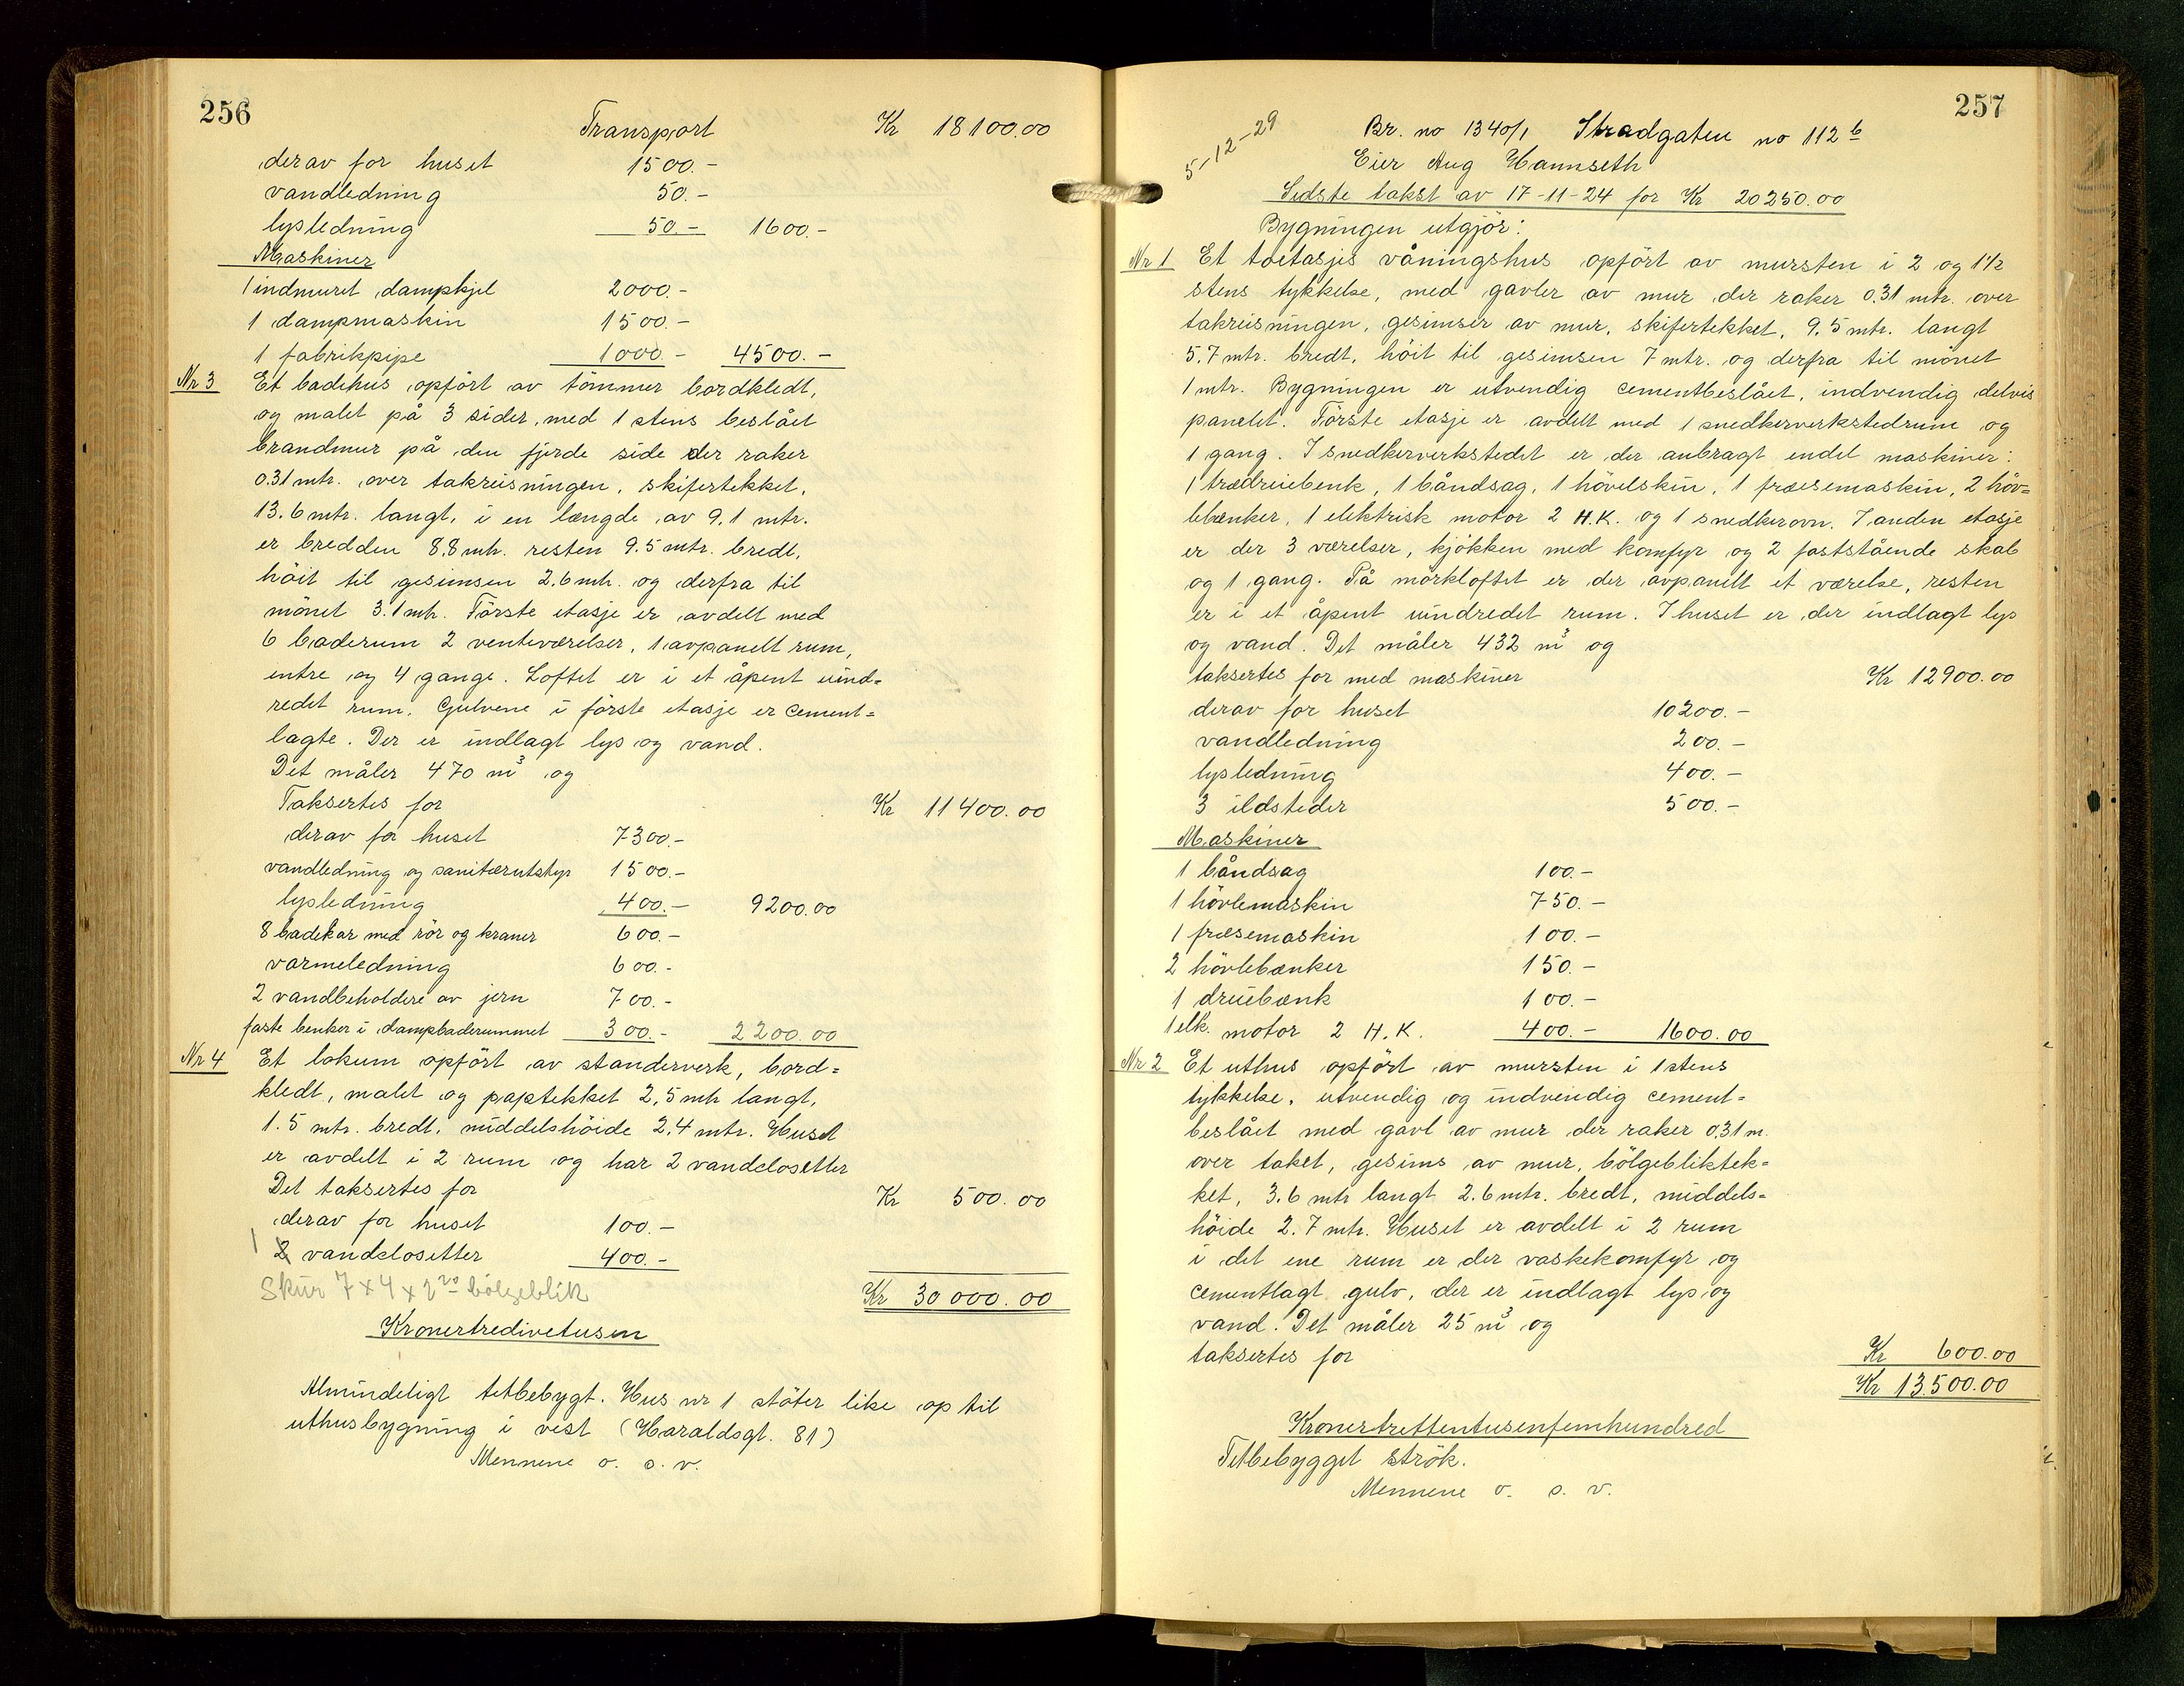 256
Transport Kr 18100.00
derav for huset 1500.-
vandledning 50.-
lysledning 50.- 1600.-
Maskiner
1 indmuret dampkjel 2000.-
1 dampmaskin 1500.-
1 fabrikpipe 1000.- 4500.-
Nr 3 Et badehus opført av tømmer bordkledt,
og malet på 3 sider, med 1 stens beslået
brandmur på den fjerde side der raker
0.31 mtr. over takreisningen, skifertekket,
13.6 mtr. langt, i en længde av 9.1 mtr.
er bredden 8.8 mtr. resten 9.5 mtr. bredt,
høit til gesimsen 2.6 mtr. og derfra til
mønet 3.1 mtr. Første etasje er avdelt med
6 baderum 2 venteværelser, 1 avpanelt rum,
entre og 4 gange. Loftet er i et åpent uind=
redet rum. Gulvene i første etasje er cement=
lagte. Der er indlagt lys og vand.
Det måler 470 m³ og
Taksertes for Kr 11400.00
derav for huset 7300.-
vandledning og sanitærutstyr 1500.-
lysledning 400.- 9200.00
8 badekar med rør og kraner 600.-
varmeledning 600.-
2 vandbeholdere av jern 700.-
faste benker i dampbaderummet 300.- 2200.00
Nr 4 Et lokum opført av standerverk, bord=
kledt, malet og paptekket 2,5 mtr langt,
1.5 mtr. bredt, middelshøide 2,4 mtr. Huset
er avdelt i 2 rum og har 2 vandclosetter
Det taksertes for Kr 500.00
derav for huset 100.-
1 2 vandclosetter 400.-
Skur 7 x 4 x 2²⁰ bølgeblik
Kr 30000.00
Kronertredivetusen
Almindeligt tetbebygt. Hus nr 1 støter like op til
uthusbygning i vest (Haraldsgt. 81)
Mennene o. s. v.
257
5-12-29
Br. no 1340/1 Stradgaten no 112 b
Eier Aug Hannseth
Sidste takst av 17-11-24 for Kr 20250.00
Bygningen utgjør:
Nr 1 Et toetasjes våningshus opført av mursten i 2 og 1½
stens tykkelse, med gavler av mur der raker 0.31 mtr. over
takreisningen, gesimser av mur, skifertekket, 9.5 mtr. langt
5.7 mtr. bredt, høit til gesimsen 7 mtr. og derfra til mønet
1 mtr. Bygningen er utvendig cementbeslået, indvendig delvis
panelet. Første etasje er avdelt med 1 snedkerverkstedrum og
1 gang. I snedkerverkstedet er der anbragt endel maskiner:
1 trædreiebenk, 1 båndsag, 1 høvelskin, 1 fræsemaskin, 2 høv=
lebænker, 1 elektrisk motor 2 H.K. og 1 snedkerovn. I anden etasje
er der 3 værelser, kjøkken med komfyr og 2 faststående skab
og 1 gang. På mørkloftet er der avpanelt et værelse, resten
er i et åpent uindredet rum. I huset er der indlagt lys
og vand. Det måler 432 m³ og
taksertes for med maskiner Kr 12900.00
derav for huset 10200.-
vandledning 200.-
lysledning 400.-
3 ildsteder 500.-
Maskiner
1 båndsag 100.-
1 høvlemaskin 750.-
1 fræsemaskin 100.-
2 høvlebænker 150.-
1 dreiebænk 100.-
1 elk. motor 2 H.K. 400.- 1600.00
Nr 2 Et uthus opført av mursten i 1 stens
tykkelse, utvendig og indvendig cement=
beslået med gavl av mur der raker 0.31 m.
over taket, gesims av mur, bølgebliktek=
ket, 3.6 mtr langt 2.6 mtr. bredt, middels=
høide 2.7 mtr. Huset er avdelt i 2 rum
i det ene rum er der vaskekomfyr og
cementlagt gulv, der er indlagt lys og
vand. Det måler 25 m³ og
taksertes for Kr 600.00
Kr 13500.00
Kronertrettentusenfemhundred
Tetbebygget strøk.
Mennene o. s. v.